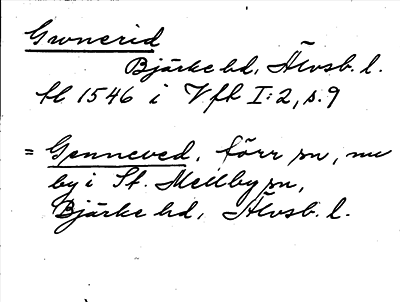 Gwnerid
Bjärke hd, Älvsb. l.
tl 1546 i Vfh I:2, s. 9
= Genneved, förr sn, nu
by i St. Mellby sn,
Bjärke hd, Älvsb. l.